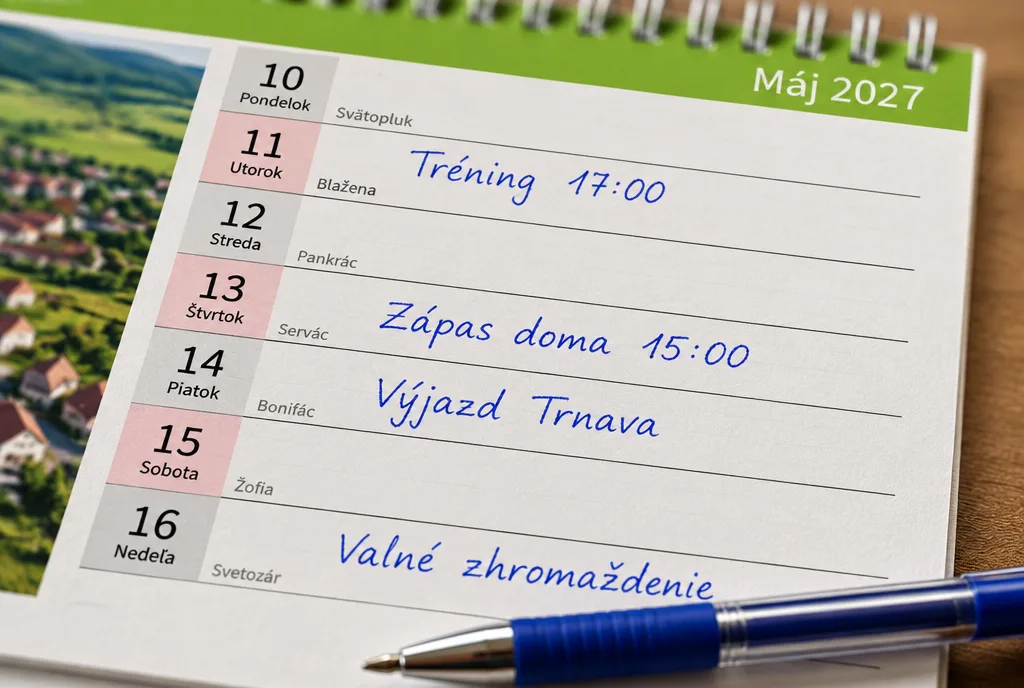 Máj 2027
10
Pondelok
Svätopluk
11
Utorok
Blažena
Tréning 17:00
12
Streda
Pankrác
13
Štvrtok
Servác
Zápas doma 15:00
14
Piatok
Bonifác
Výjazd Trnava
15
Sobota
Žofia
16
Nedeľa
Svetozár
Valné zhromaždenie